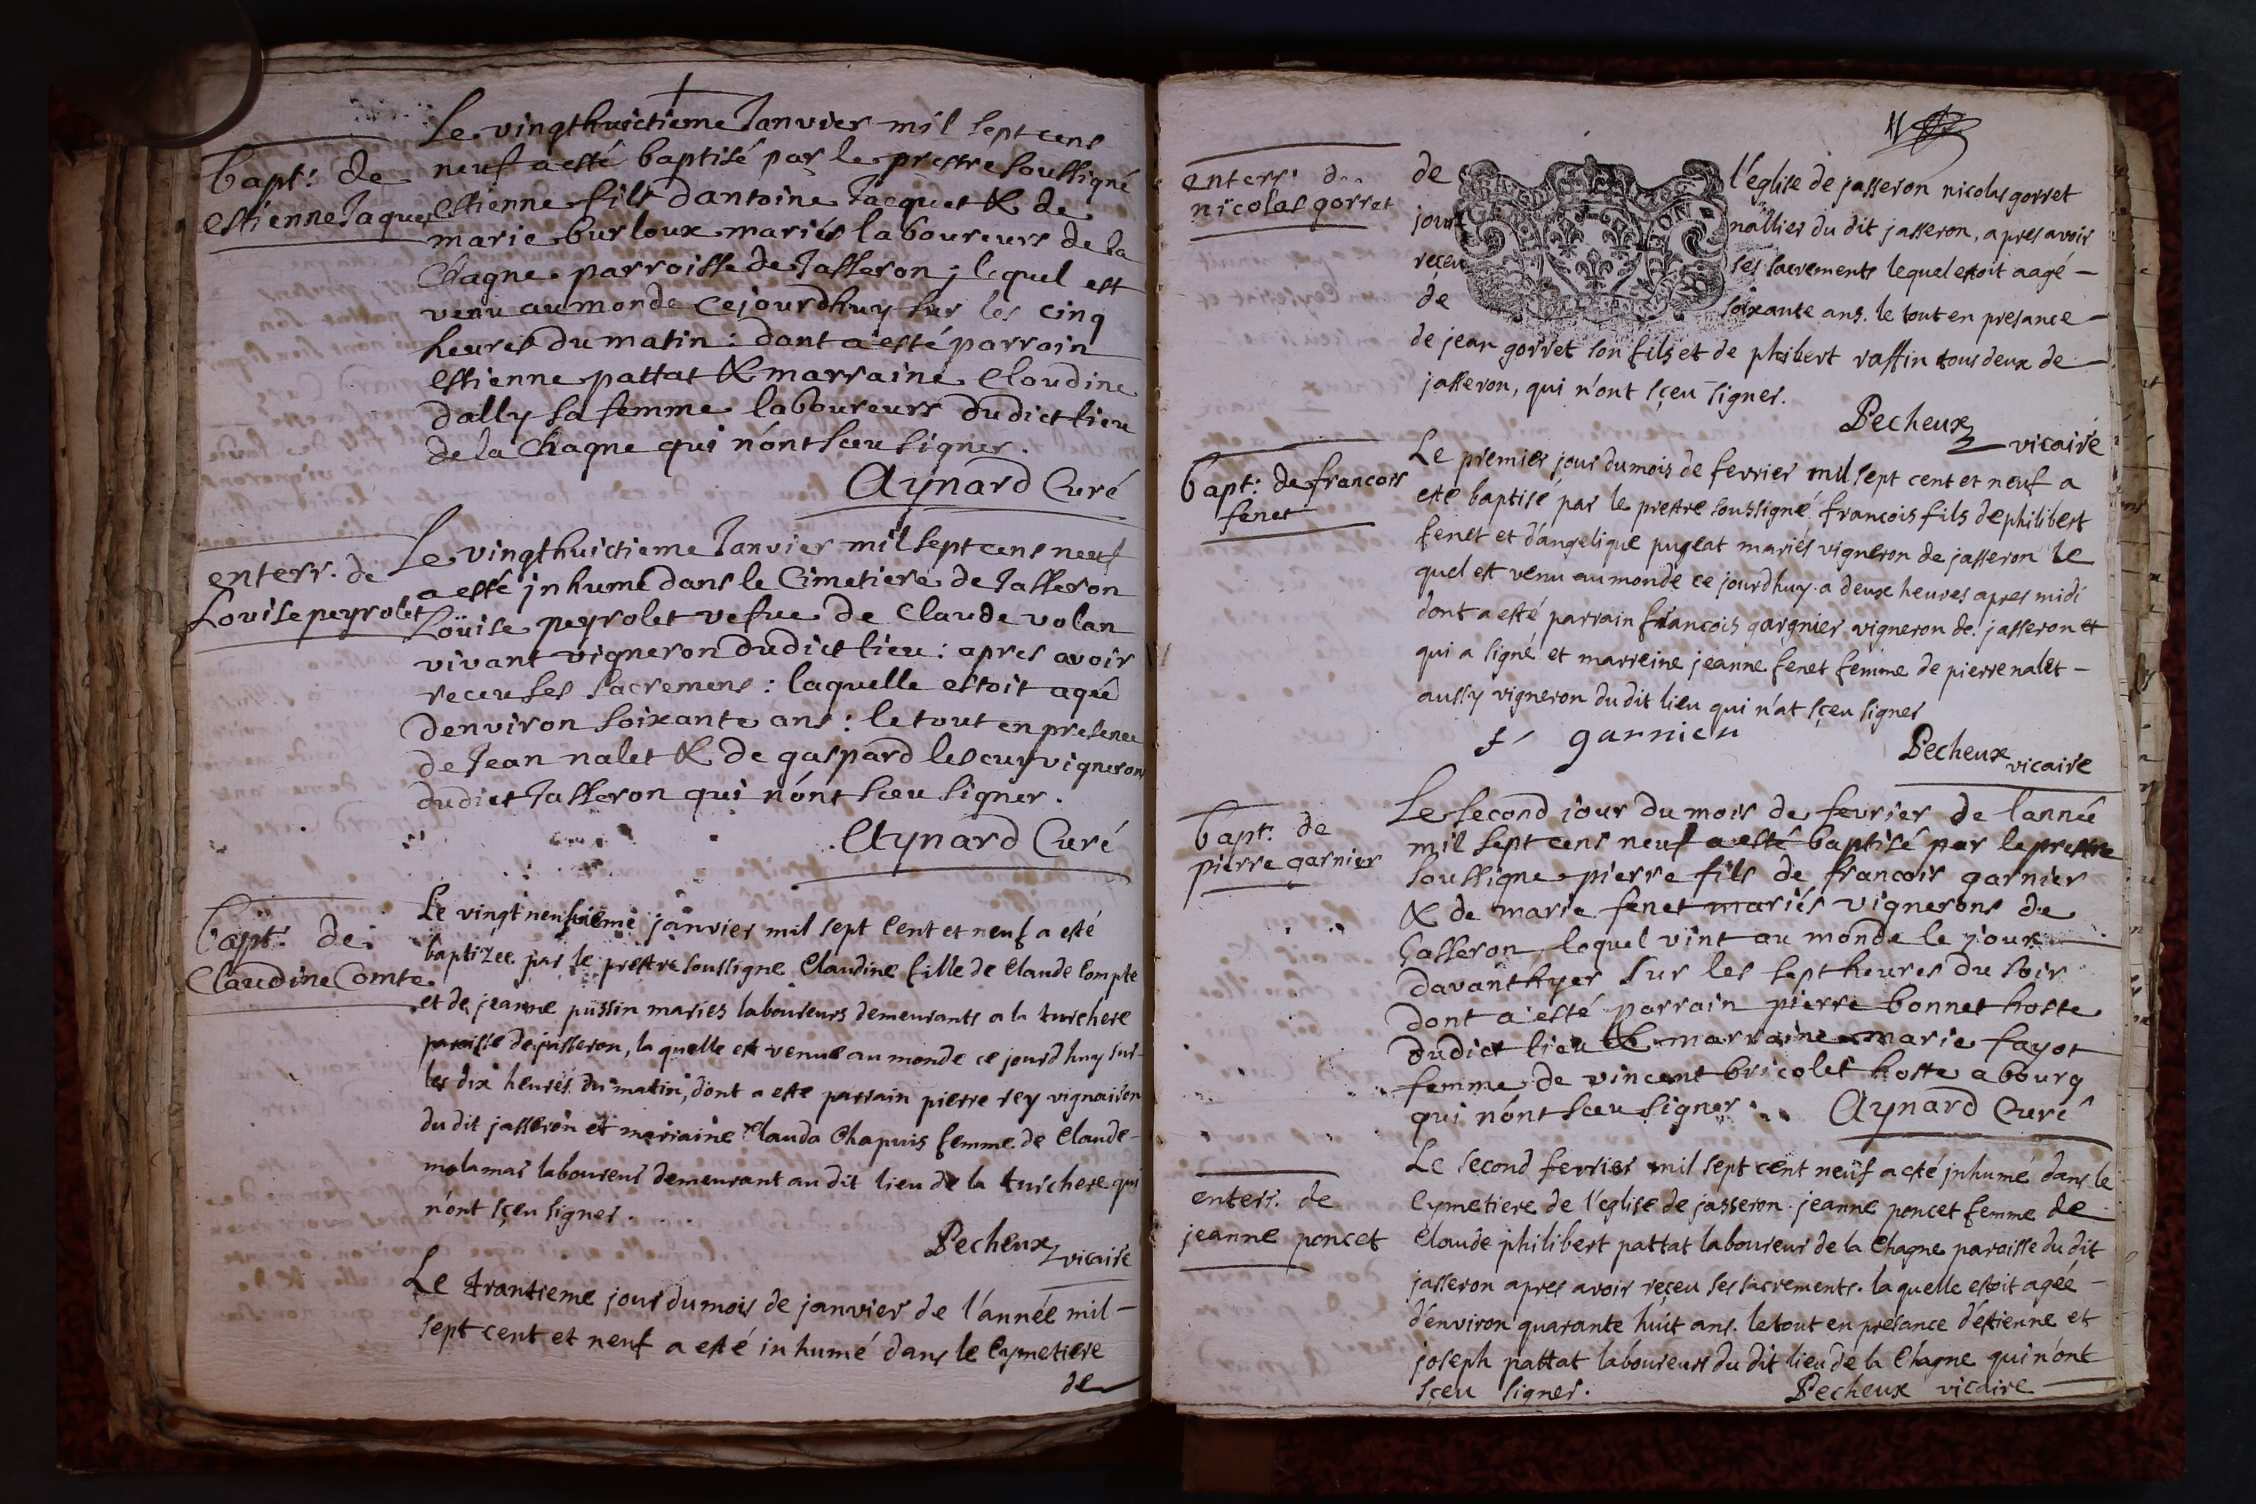 Bapt: de
estienne Jaquet
Le vingthuictieme Janvier mil sept cens
neuf a esté baptisé par le prestre soussigné
estienne fils dantoine Jacquet & de
marie burloux mariés laboureurs de la
Chagne parroisse de Jasseron ; lequel est
venu au monde cejourdhuy sur les cinq
heures du matin : dont a esté parrain
estienne pattat & marraine Claudine
dally sa femme laboureurs dudict lieu
de la Chagne qui n'ont sceu signer.
Aynard Curé
enterr. de
Lovise peyrolet
Le vingthuictieme Janvier mil sept cens neuf
a esté inhumé dans le Cimetiere de Jasseron
Loüise peyrolet vefue de Claude volan
vivant vigneron dudict lieu : apres avoir
receu ses sacremens : laquelle estoit agée
denviron soixante ans : le tout en presence
de Jean nalet & de gaspard lescuy vigneron
dudict Jasseron qui n'ont sceu signer.
Aynard Curé
Bapt: de
Claudine Comte
Le vingt neufvieme janvier mil sept Cent et neuf a esté
baptizee par le prestre soussigne Claudine fille de Claude Compte
et de jeanne pussin mariés laboureurs demeurants a la turchere
paroisse de jasseron, la quelle est venue au monde ce jourdhuy sur
les dix heures du matin, dont a este parrain pierre rey vigneron
du dit jasseron et marraine Clauda Chapuis femme de Claude
malamas laboureur demeurant au dit lieu de la turchere qui
n'ont sçeu signer.
Pecheux vicaire
Le trantieme jour du mois de janvier de l'année mil
sept cent et neuf a esté inhumé dans le Cymetiere
de
11
enterr: de
nicolas gorret
de l'eglise de jasseron nicolas gorret
jour nallier du dit jasseron, apres avoir
reçeu ses sacrements lequel estoit aagé
de soixante ans. le tout en presance
de jean gorret son fils et de phibert raffin tous deux de
jasseron, qui n'ont sçeu signer.
Pecheux vicaire
Bapt: de francois
fenet
Le premier jour du mois de fevrier mil sept cent et neuf a
esté baptisé par le prestre soussigné francois fils de philibert
fenet et d'angelique pugeat mariés vigneron de jasseron le
quel est venu au monde ce jourdhuy a deux heures apres midi
dont a esté parrain francois gargnier vigneron de jasseron et
qui a signé et marreine jeanne fenet femme de pierre nalet
aussy vigneron du dit lieu qui n'at sçeu signer
f garnier
Pecheux vicaire
Bapt: de
pierre garnier
Le second jour du mois de fevrier de lannée
mil sept cens neuf a esté baptisé par le prestre
soussigne pierre fils de francois garnier
& de marie fenet mariés vignerons de
Jasseron, lequel vint au monde le jour
davant hyer sur les sept heures du soir
dont a esté parrain pierre bonnet hoste
dudict lieu & marraine marie fayot
femme de vincent bricolet hoste a bourg
qui n'ont sceu signer.
Aynard Curé
enterr. de
jeanne poncet
Le second fevrier mil sept cent neuf a esté inhumé dans le
Cymetiere de l'eglise de jasseron jeanne poncet femme de
Claude philibert pattat laboureur de la Chagne paroisse du dit
jasseron apres avoir reçeu ses sacrements. la quelle estoit agée
d'environ quarante huit ans. le tout en presance d'estienne et
joseph pattat laboureurs du dit lieu de la Chagne qui n'ont
sçeu signer.
Pecheux vicaire